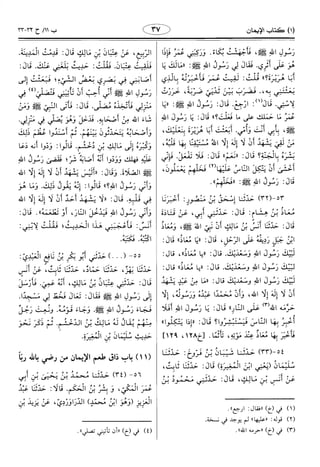 (١) كتاب الإيمان ٣٧ ب ١١/ ح ٢٢-٢٣
رسول الله ﷺ، فأجهشت بكاء، وركبني عمر فإذا
هو على أثري. فقال لي رسول الله ﷺ: «مالك يا
أبا هريرة؟» قلت: لقيت عمر فأخبرته بالذي
بعثتني به، فضرب بين ثديي ضربة، خررت
لاستي، قال: ارجع. قال رسول الله ﷺ: «يا
عمر ما حملك على ما فعلت؟» قال: يا رسول الله
ﷺ، بأبي أنت وأمي، أبعثت أبا هريرة بنعليك،
من لقي يشهد أن لا إله إلا الله مستيقنا بها قلبه،
بشره بالجنة؟ قال: «نعم» قال: فلا تفعل، فإني
أخشى أن يتكل الناس عليها فخلهم يعملون،
قال رسول الله ﷺ: «فخلهم».
٥٣-(٣٢) حدثنا إسحق بن منصور: أخبرنا
معاذ بن هشام: حدثني أبي، عن قتادة
قال: حدثنا أنس بن مالك أن نبي الله ﷺ، ومعاذ
ابن جبل رديفه على الرحل، قال: «يا معاذ» قال:
لبيك رسول الله وسعديك. قال: «يا معاذ» قال:
لبيك رسول الله وسعديك. قال: «يا معاذ» قال:
لبيك رسول الله وسعديك. قال: «ما من عبد يشهد
أن لا إله إلا الله، وأن محمدا عبده ورسوله، إلا
حرمه الله على النار» قال: يا رسول الله أفلا
أخبر بها الناس فيستبشروا؟ قال: «إذا يتكلوا»
فأخبر بها معاذ عند موته، تأثما.
٥٤-(٣٣) حدثنا شيبان بن فروخ: حدثنا
سليمان (يعني ابن المغيرة) قال: حدثنا ثابت،
عن أنس بن مالك، قال: حدثني محمود بن
(١) في (خ) «فقال: ارجع».
(٢) قوله: «عليها» لم يوجد في نسخة.
(٣) في (خ) «حرمه الله».
الربيع، عن عتبان بن مالك قال: قدمت المدينة،
فلقيت عتبان، فقلت: حديث بلغني عنك، قال:
أصابني في بصري بعض الشيء، فبعثت إلى
رسول الله ﷺ أني أحب أن تأتيني فتصلي في
منزلي، فأتخذه مصلى، قال: فأتى النبي ﷺ ومن
شاء الله من أصحابه، فدخل وهو يصلي في منزلي،
وأصحابه يتحدثون بينهم، ثم أسندوا عظم ذلك
وكبره إلى مالك بن دخشم، قالوا: ودوا أنه دعا
عليه فهلك وودوا أنه أصابه شر، فقضى رسول الله
ﷺ الصلاة. وقال: «أليس يشهد أن لا إله إلا الله
وأني رسول الله ﷺ؟» قالوا: إنه يقول ذلك. وما هو
في قلبه. قال: «لا يشهد أحد أن لا إله إلا الله
وأني رسول الله فيدخل النار، أو تطعمه». قال
أنس: فأعجبني هذا الحديث، فقلت لابني:
اكتبه، فكتبه.
٥٥-(...) حدثني أبو بكر بن نافع العبدي:
حدثنا بهز، حدثنا حماد، حدثنا ثابت، عن أنس
قال: حدثني عتبان بن مالك، أنه عمي. فأرسل
إلى رسول الله ﷺ فقال: تعال فخط لي مسجدا،
فجاء رسول الله ﷺ، وجاء قومه، ونعت رجل
منهم يقال له مالك بن الدخشم، ثم ذكر نحو
حديث سليمان بن المغيرة.
(١١) باب ذاق طعم الإيمان من رضي بالله ربا
٥٦-(٣٤) حدثنا محمد بن يحيى بن أبي
عمر المكي، و بشر بن الحكم، قالا: حدثنا عبد
العزيز (وهو ابن محمد) الدراوردي، عن يزيد بن
(٤) في (خ) «أن تأتيني تصلي».